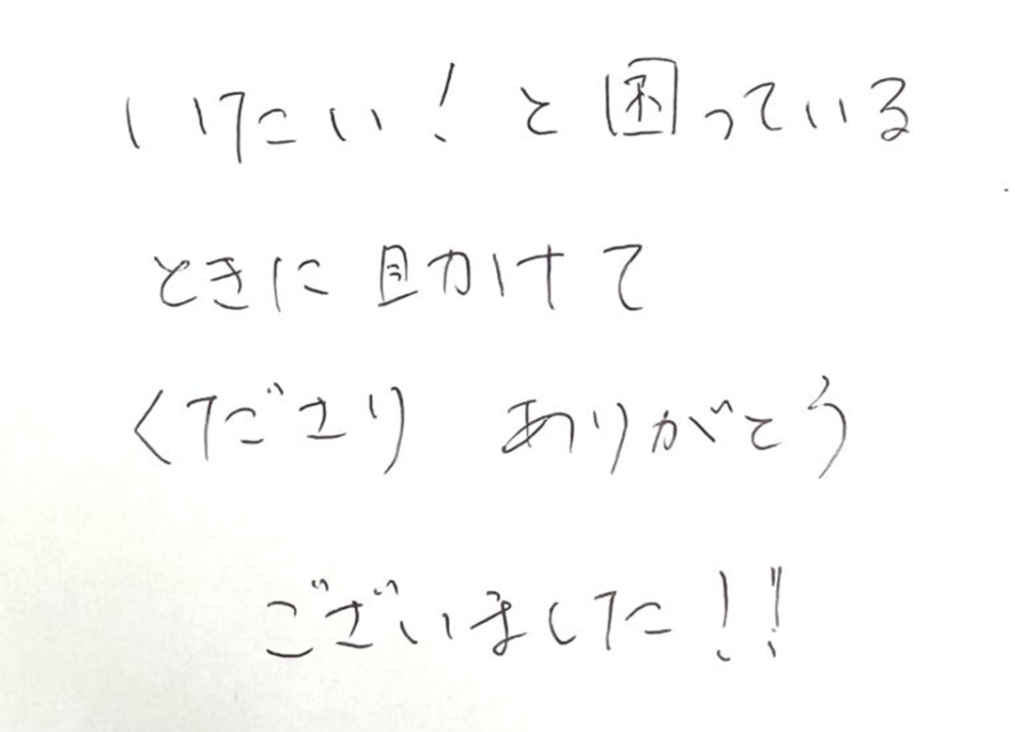 いたい!と困っている
ときに助けて
くださり ありがとう
ございました!!